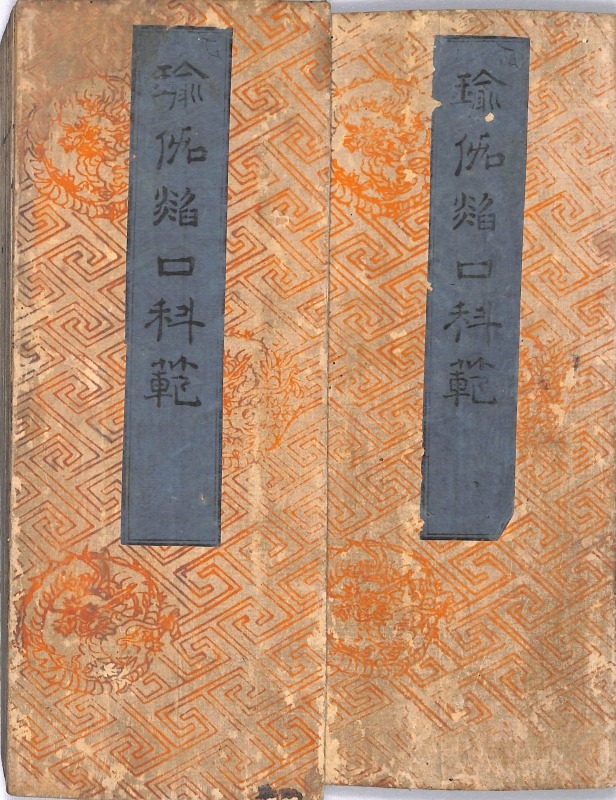 瑜伽燄口科範
瑜伽燄口科範